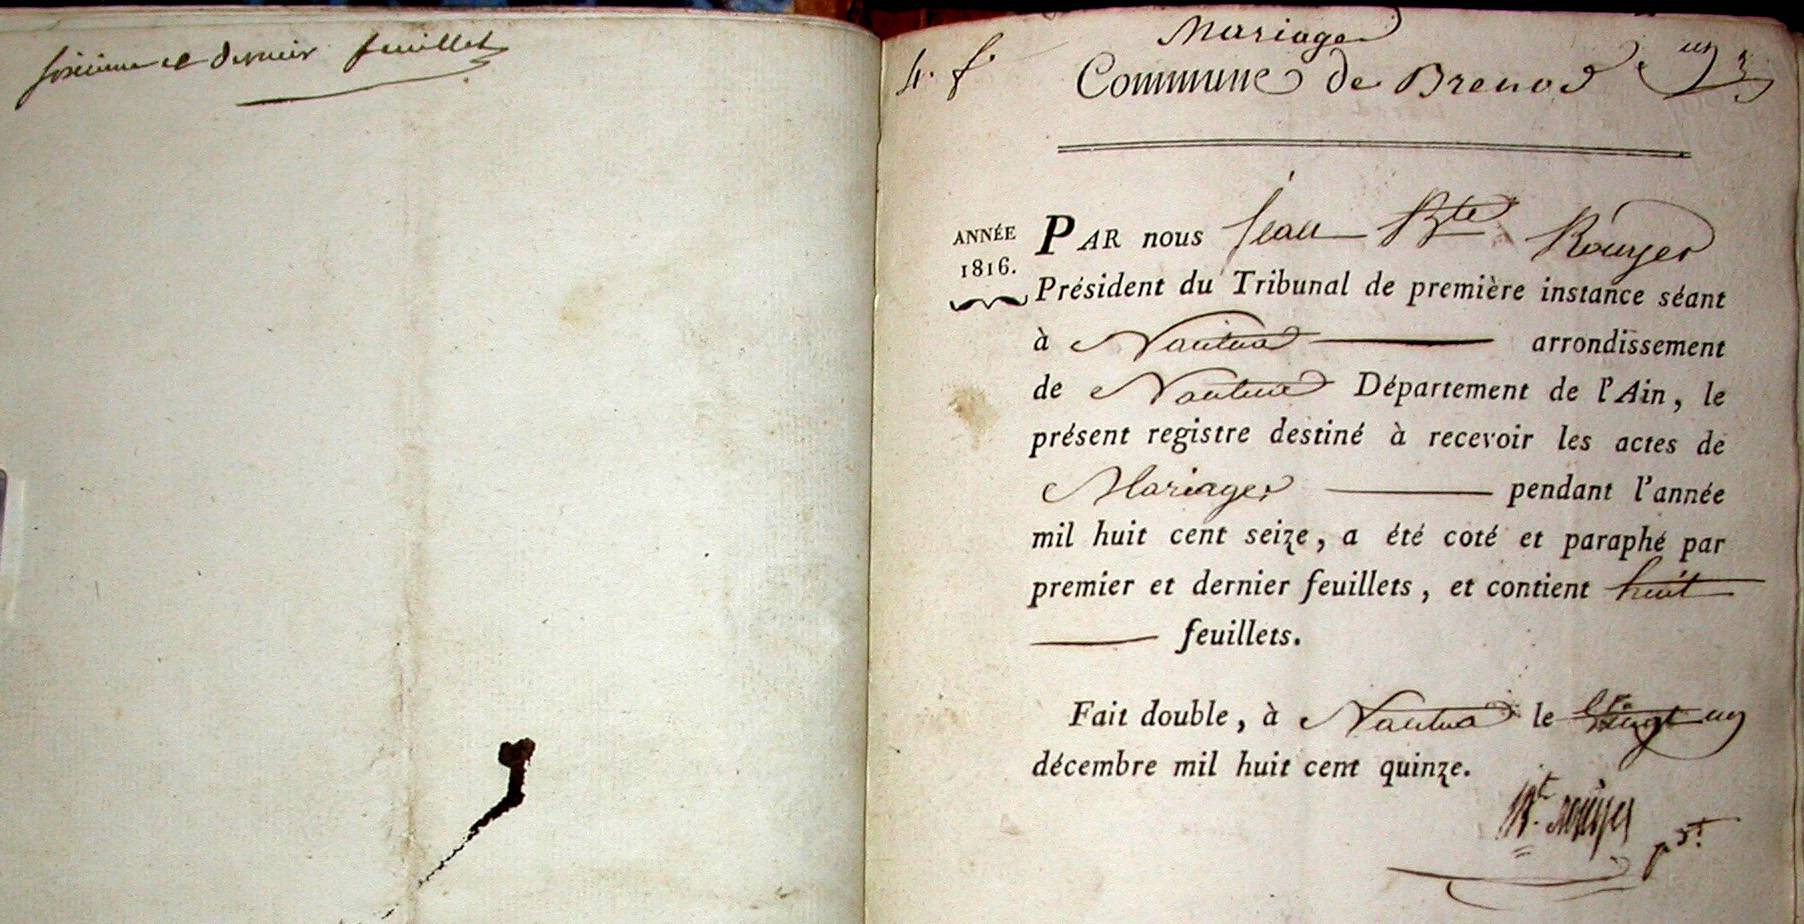 et dernier feuillet
4. f.
Mariages
Commune de Brenod
un
ANNÉE
1816.
PAR nous Jean Bte Rouyer
Président du Tribunal de première instance séant
à Nantua arrondissement
de Nantua Département de l'Ain, le
présent registre destiné à recevoir les actes de
Mariages pendant l'année
mil huit cent seize, a été coté et paraphé par
premier et dernier feuillets, et contient huit
feuillets.
Fait double, à Nantua le vingt un
décembre mil huit cent quinze.
Bt. Rouyer
pdt.